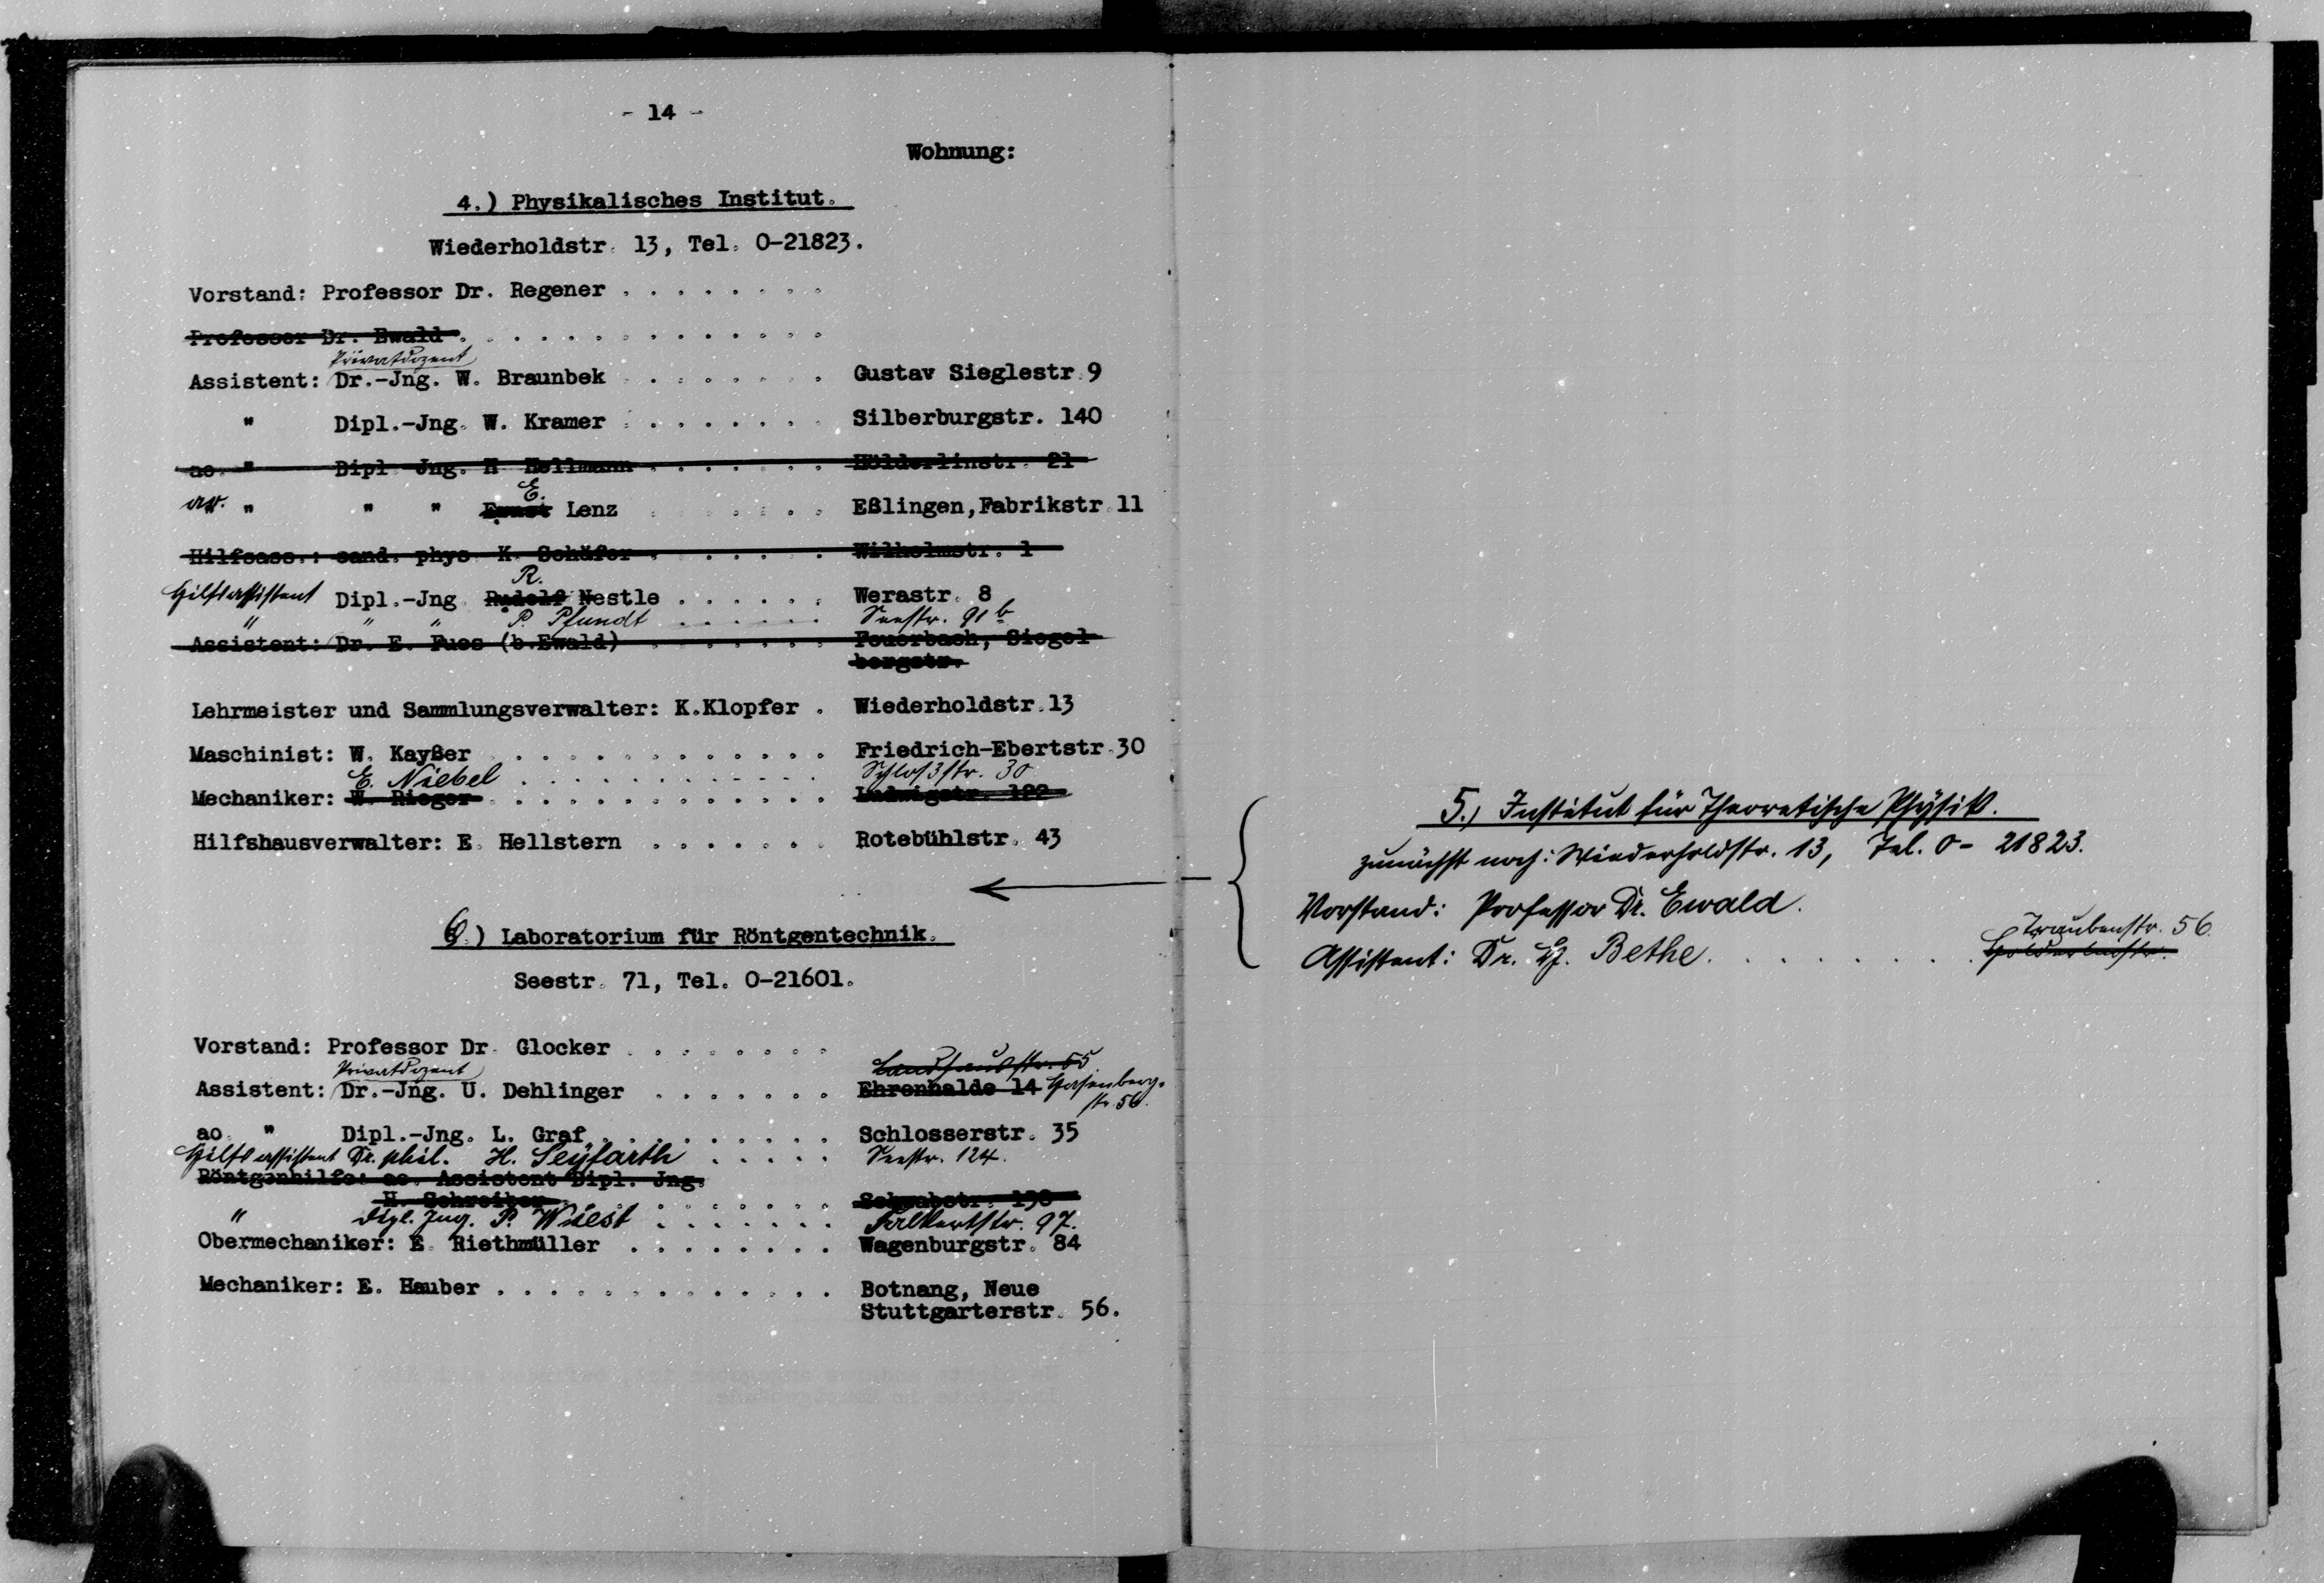 - 14 -
Wohnung:
4.) Physikalisches Institut.
Wiederholdstr. 13, Tel. O-21823.
Vorstand: Professor Dr. Regener . . . . . . . .
Professor Dr. Ewald . . . . . . . . . . . . . .
Privatdozent
Assistent: Dr.-Jng. W. Braunbek . . . . . . . . Gustav Sieglestr. 9
" Dipl.-Jng. W. Kramer . . . . . . . . Silberburgstr. 140
ao. " Dipl. Jng. H. Hellmann . . . . . . . Hölderlinstr. 21
E.
ao. " " " Ernst Lenz . . . . . . . Eßlingen, Fabrikstr. 11
Hilfsass.: cand. phys. K. Schäfer . . . . . . Wilhelmstr. 1
R.
Hilfsassistent Dipl.-Jng. Rudolf Nestle . . . . . . Werastr. 8
" " " P. Pfundt . . . . . . Seestr. 91 b
Assistent: Dr. E. Fues (b.Ewald) . . . . . . . Feuerbach, Siegel-
bergstr.
Lehrmeister und Sammlungsverwalter: K.Klopfer . Wiederholdstr. 13
Maschinist: W. Kayßer . . . . . . . . . . . . . Friedrich-Ebertstr. 30
E. Niebel . . . . . . . . . . . . Schloßstr. 30
Mechaniker: W. Rieger . . . . . . . . . . . . . Ludwigstr. 122
Hilfshausverwalter: E. Hellstern . . . . . . . Rotebühlstr. 43
6.) Laboratorium für Röntgentechnik.
Seestr. 71, Tel. O-21601.
Vorstand: Professor Dr. Glocker . . . . . . . .
Privatdozent Landhausstr. 55
Assistent: Dr.-Jng. U. Dehlinger . . . . . . . Ehrenhalde 14 Hasenberg-
str. 56.
ao. " Dipl.-Jng. L. Graf . . . . . . . . . Schlosserstr. 35
Hilfsassistent Dr. phil. H. Seyfarth . . . . . Seestr. 124.
Röntgenhilfe: ao. Assistent Dipl. Jng.
H. Schreiber . . . . . . . . . . Schwabstr. 138
" Dipl. Jng. P. Wiest . . . . . . . Falkertstr. 97.
Obermechaniker: E. Riethmüller . . . . . . . . Wagenburgstr. 84
Mechaniker: E. Hauber . . . . . . . . . . . . . Botnang, Neue
Stuttgarterstr. 56.
5.) Institut für Theoretische Physik.
zunächst noch: Wiederholdstr. 13, Tel. O- 21823.
Vorstand: Professor Dr. Ewald.
Traubenstr. 56.
Assistent: Dr. H. Bethe. . . . . . . . Hölderlinstr.